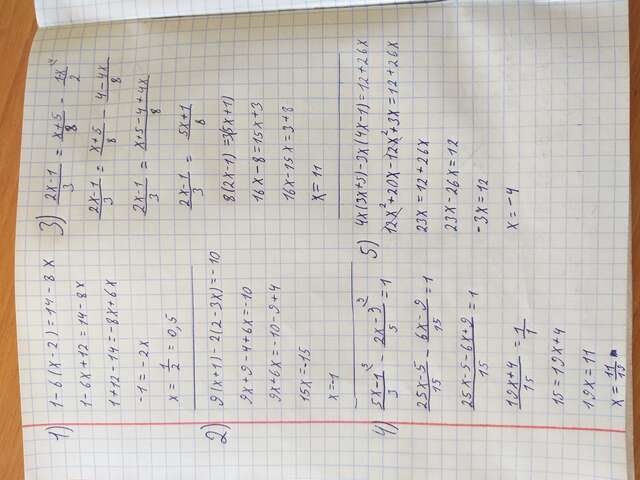 1) 1-6(x-2)=14-8x
1-6x+12=14-8x
1+12-14=-8x+6x
-1=-2x
x=1/2=0,5
2) 9(x+1)-2(2-3x)=-10
9x+9-4+6x=-10
9x+6x=-10-9+4
15x=-15
x=-1
3) (2x-1)/3 = (x+5)/8 - (1-x)/2
(2x-1)/3 = (x+5)/8 - (4-4x)/8
(2x-1)/3 = (x+5-4+4x)/8
(2x-1)/3 = (5x+1)/8
8(2x-1)=3(5x+1)
16x-8=15x+3
16x-15x=3+8
x=11
4) (5x-1)/3 - (2x-3)/5 = 1
(25x-5)/15 - (6x-9)/15 = 1
(25x-5-6x+9)/15 = 1
(19x+4)/15 = 1/1
15=19x+4
19x=11
5) 4x(3x+5)-3x(4x-1)=12+26x
12x²+20x-12x²+3x=12+26x
23x=12+26x
23x-26x=12
-3x=12
x=-4